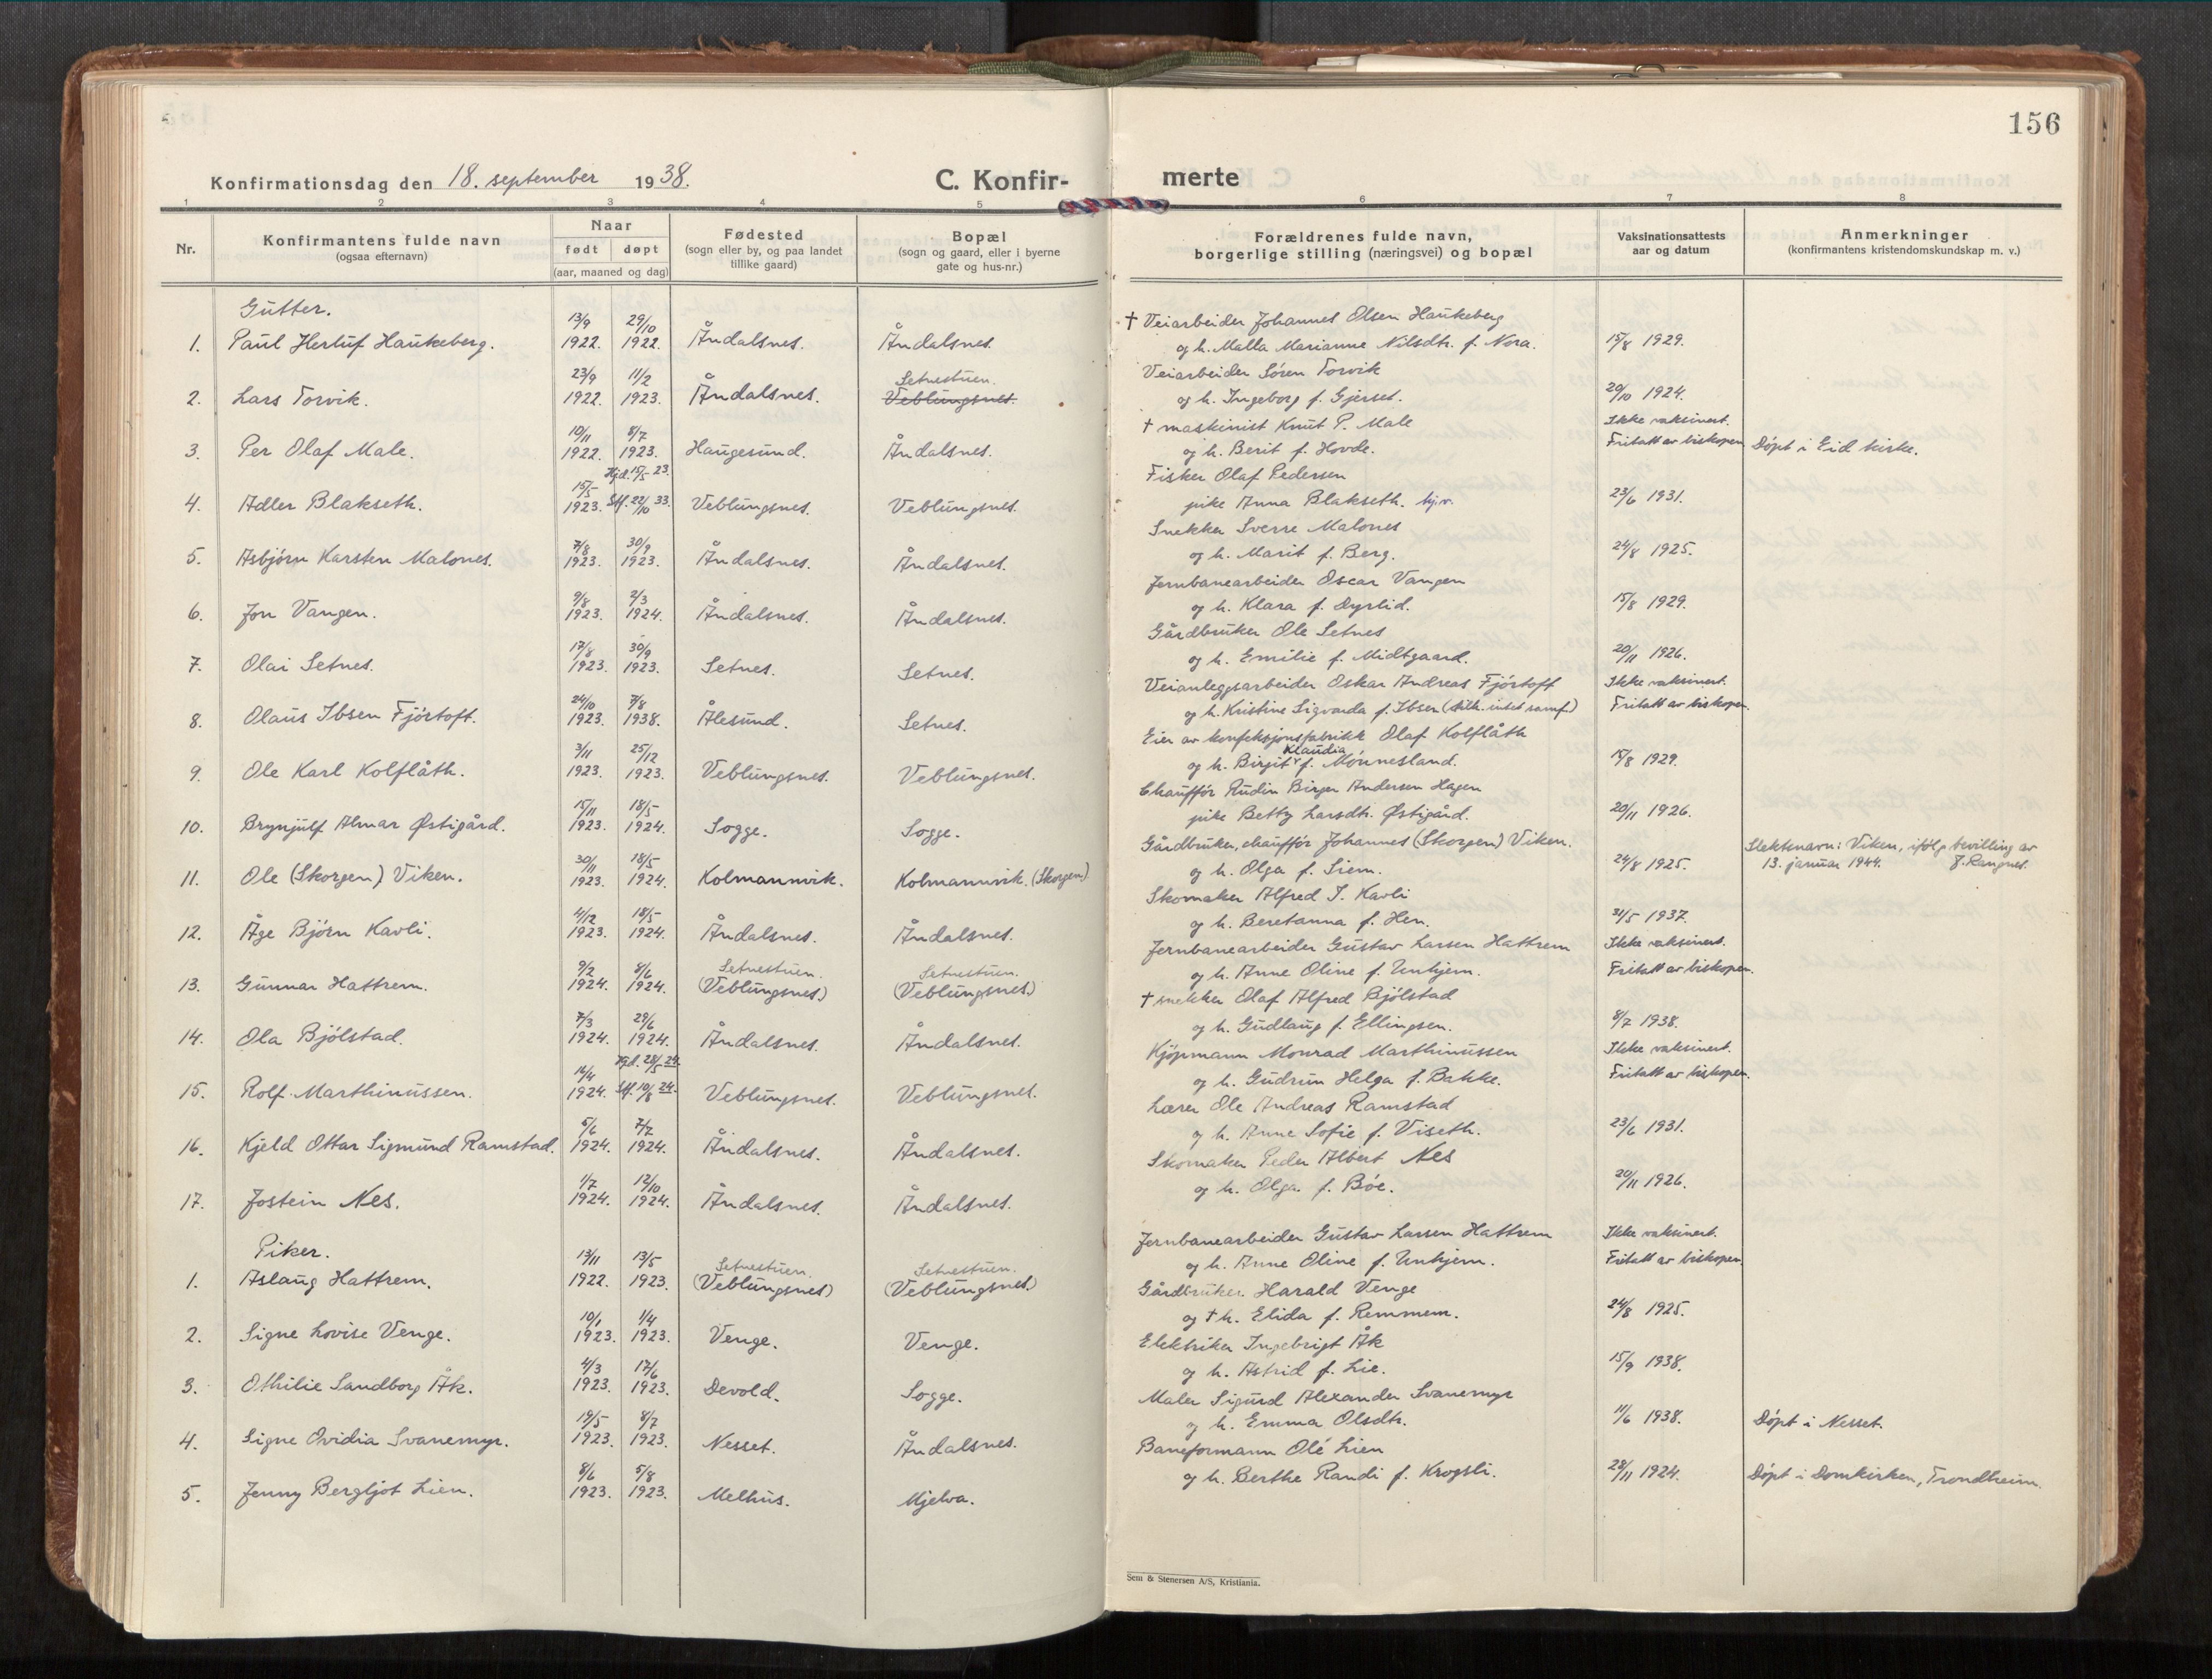 156
Konfirmationsdag den 18. september 1938.
C. Konfir-
merte
1 2 3 4 5 6 7 8
Nr.
Konfirmantens fulde navn
(ogsaa efternavn)
Naar
født døpt
(aar, maaned og dag)
Fødested
(sogn eller by, og paa landet
tillike gaard)
Bopæl
(sogn og gaard, eller i byerne
gate og hus-nr.)
Forældrenes fulde navn,
borgerlige stilling (næringsvei) og bopæl
Vaksinationsattests
aar og datum
Anmerkninger
(konfirmantens kristendomskundskap m. v.)
Gutter.
13/9 29/10 † Veiarbeider Johannes Olsen Haukeberg
1. Paul Herluf Haukeberg. 1922. 1922. Åndalsnes. Åndalsnes. og h. Malla Marianne Nilsdtr. f. Nora. 15/8 1929.
23/9 11/2 Setnestuen. Veiarbeider Søren Torvik
2. Lars Torvik. 1922. 1923. Åndalsnes. Veblungsnes. og h. Ingeborg f. Gjerset. 20/10 1924.
10/11 8/7 † maskinist Knut P. Male Ikke vaksinert.
3. Per Olaf Male. 1922. 1923. Haugesund. Åndalsnes. og h. Berit f. Hovde. Fritatt av biskopen. Døpt i Eid kirke.
15/5 Hjd. 15/5 23. Fisker Olaf Pedersen
4. Adler Blakseth. 1923. Stf. 22/10 33. Veblungsnes. Veblungsnes. pike Anna Blakseth. hj.v. 23/6 1931.
7/8 30/9 Snekker Sverre Malones
5. Asbjørn Karsten Malones. 1923. 1923. Åndalsnes. Åndalsnes. og h. Marit f. Berg. 24/8 1925.
9/8 2/3 Jernbanearbeider Oscar Vangen
6. Jon Vangen. 1923. 1924. Åndalsnes. Åndalsnes. og h. Klara f. Dyrlid. 15/8 1929.
17/8 30/9 Gårdbruker Ole Setnes
7. Olai Setnes. 1923. 1923. Setnes. Setnes. og h. Emilie f. Midtgaard. 20/11 1926.
24/10 7/8 Veianleggsarbeider Oskar Andreas Fjörtoft Ikke vaksinert.
8. Olaus Ibsen Fjörtoft. 1923. 1938. Ålesund. Setnes. og h. Kristine Sigvarda f. Ibsen Fritatt av biskopen.
3/11 25/12 Eier av konfeksjonsfabrikk Olaf Kolflåth
Klaudia
9. Ole Karl Kolflåth. 1923. 1923. Veblungsnes. Veblungsnes. og h. Birgit f. Mönnesland. 15/8 1929.
15/11 18/5 Chauffør Rudin Birger Andersen Hagen
10. Brynjulf Almar Østigård. 1923. 1924. Sogge. Sogge. pike Betty Larsdtr. Østigård. 20/11 1926.
30/11 18/5 Gårdbruker, chauffør Johannes (Skorgen) Viken. Slektsnavn: Viken, ifølge bevilling av
11. Ole (Skorgen) Viken. 1923. 1924. Kolmannvik. Kolmannvik. (Skorgen) og h. Olga f. Siem. 24/8 1925. 13. januar 1944.
4/12 18/5 Skomaker Alfred J. Kavli
12. Åge Björn Kavli. 1923. 1924. Åndalsnes. Åndalsnes. og h. Beretanna f. Hen. 31/5 1937.
9/2 8/6 Setnestuen. Setnestuen. Jernbanearbeider Gustav Larsen Hattrem Ikke vaksinert.
13. Gunnar Hattrem. 1924. 1924. (Veblungsnes.) (Veblungsnes.) og h. Anne Oline f. Unhjem. Fritatt av biskopen.
7/3 29/6 † snekker Olaf Alfred Bjölstad
14. Ola Bjölstad. 1924. 1924. Åndalsnes. Åndalsnes. og h. Gudlaug f. Ellingsen. 8/7 1938.
14/4 Hjd. 28/5 24. Kjöpmann Monrad Marthinussen Ikke vaksinert.
15. Rolf Marthinussen. 1924. Stf. 10/8 24. Veblungsnes. Veblungsnes. og h. Gudrun Helga f. Bakke. Fritatt av biskopen.
5/6 7/7 Lærer Ole Andreas Ramstad
16. Kjeld Ottar Sigmund Ramstad. 1924. 1924. Åndalsnes. Åndalsnes. og h. Anne Sofie f. Viseth. 23/6 1931.
1/7 12/10 Skomaker Peder Albert Nes
17. Jostein Nes. 1924. 1924. Åndalsnes. Åndalsnes. og h. Olga f. Böe. 20/11 1926.
Piker.
13/11 13/5 Setnestuen. Setnestuen. Jernbanearbeider Gustav Larsen Hattrem Ikke vaksinert.
1. Aslaug Hattrem. 1922. 1923. (Veblungsnes) (Veblungsnes.) og h. Anne Oline f. Unhjem. Fritatt av biskopen.
10/1 1/4 Gårdbruker Harald Venge
2. Signe Lovise Venge. 1923. 1923. Venge. Venge. og † h. Elida f. Remmem. 24/8 1925.
4/3 17/6 Elektriker Ingebrigt Åk
3. Othilie Sandborg Åk. 1923. 1923. Devold. Sogge. og h. Astrid f. Lie. 15/9 1938.
19/5 8/7 Maler Sigurd Alexander Svanemyr
4. Signe Ovidia Svanemyr. 1923. 1923. Nesset. Åndalsnes. og h. Emma Olsdtr. 11/6 1938. Döpt i Nesset.
8/6 5/8 Baneformann Ole Lien
5. Jenny Bergljot Lien. 1923. 1923. Melhus. Mjelva. og h. Berthe Randi f. Krogsli. 28/11 1924. Döpt i Domkirken, Trondheim.
Sem & Stenersen A/S, Kristiania.